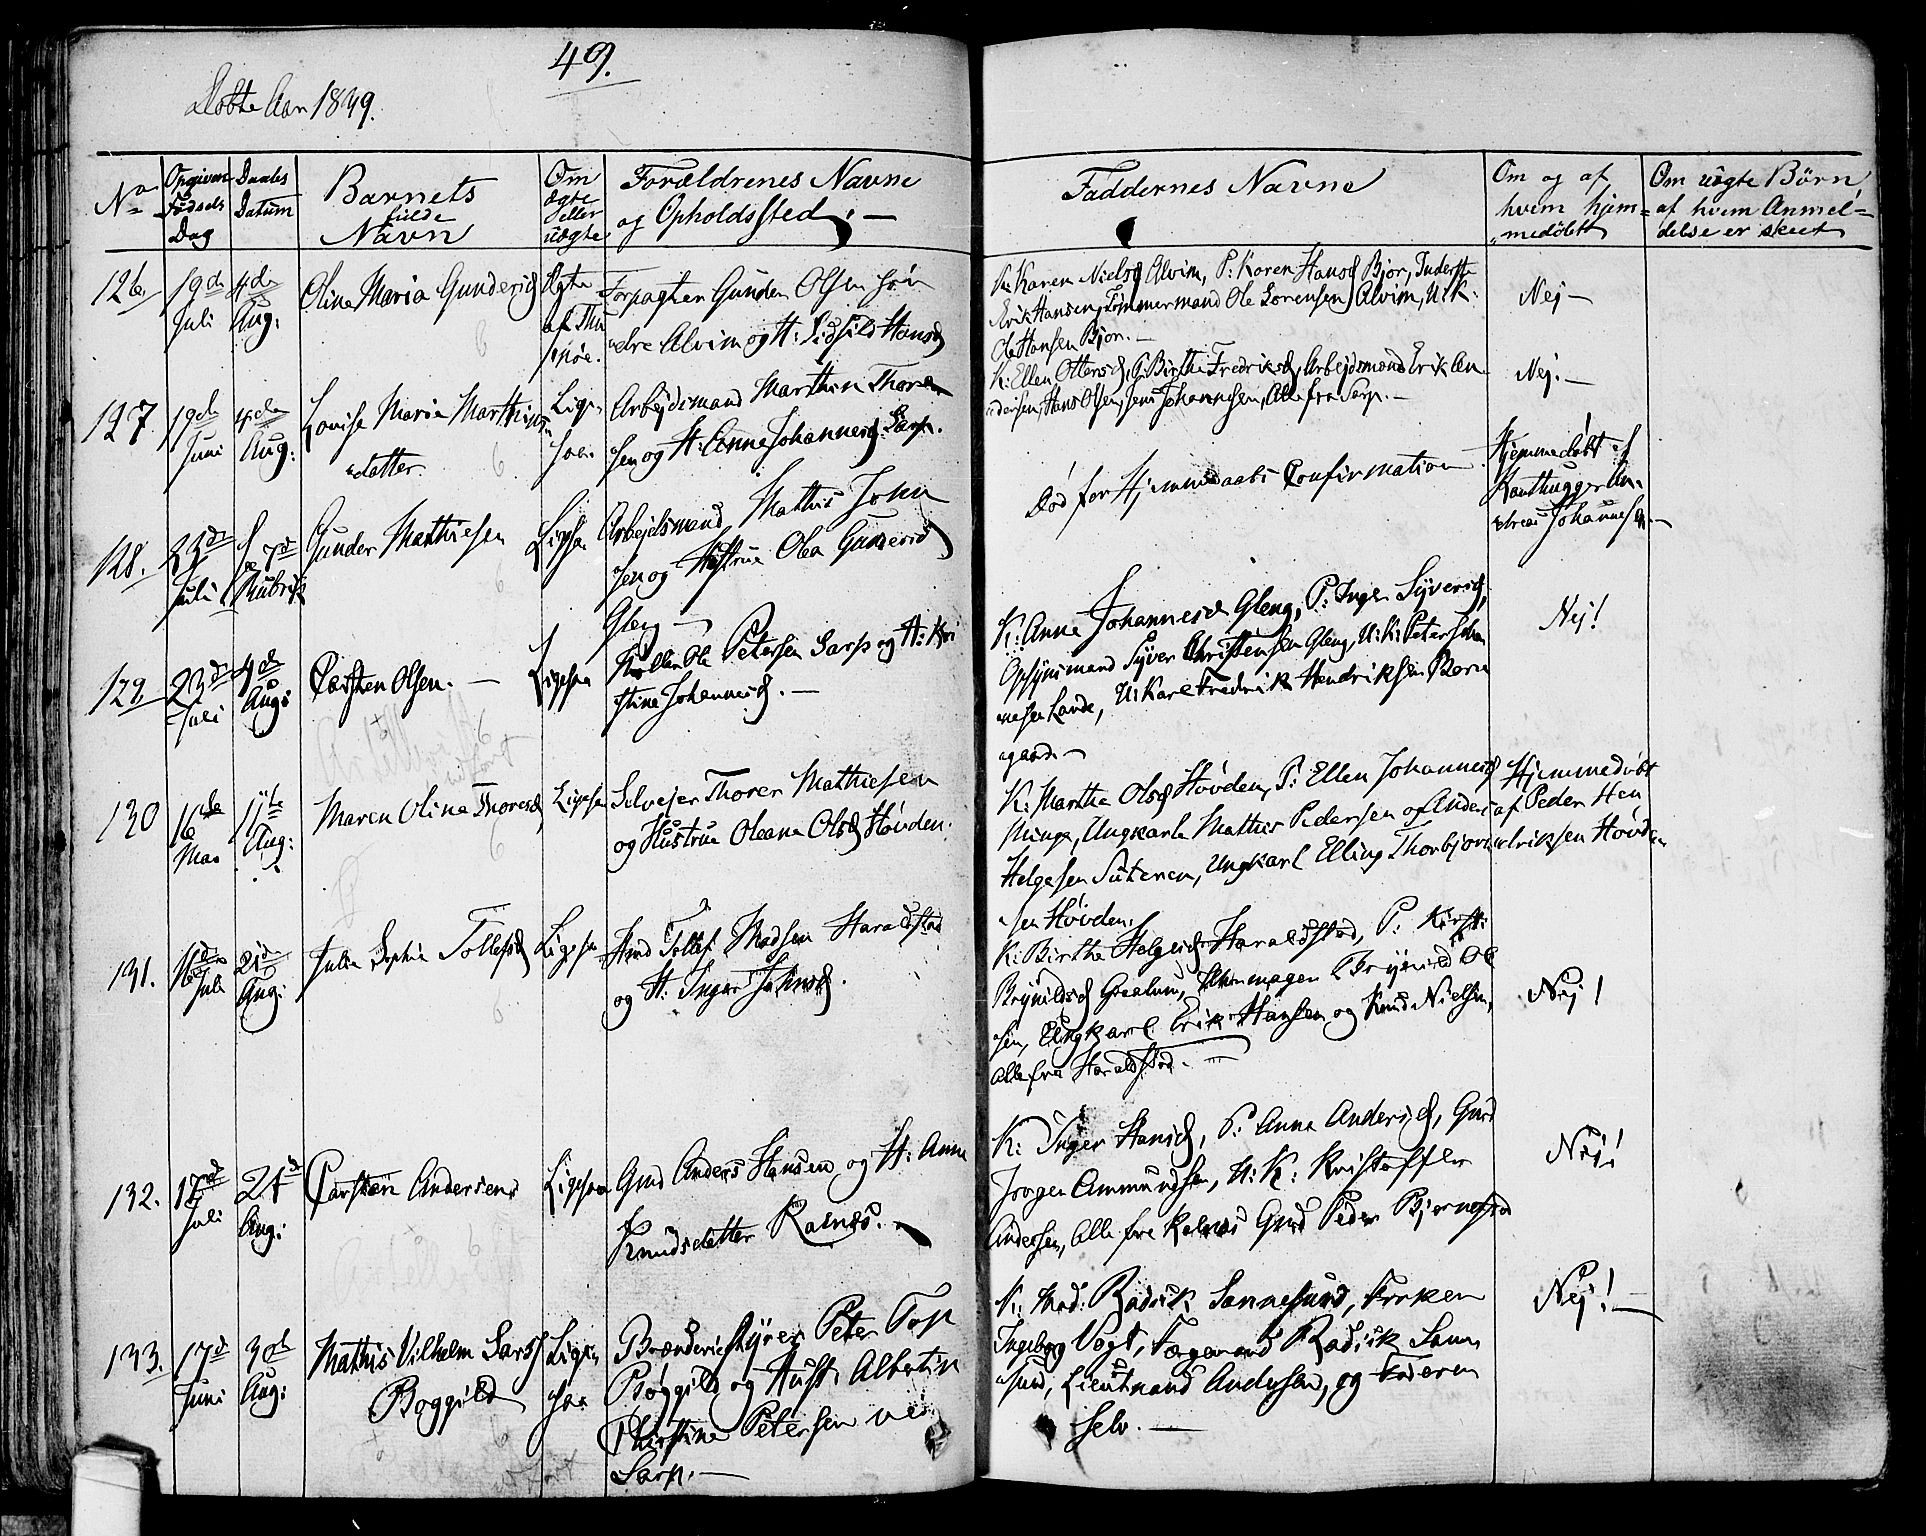 49.
Döbte Aar 1839.
No
Opgiven Fødsels Dag
Daabs Datum
Barnets fulde Navn
Om ægte eller uægte
Forældrenes Navne og Opholdssted.
Faddernes Navne
Om og af hvem hjemmedøbt
Om uægte Børn, af hvem Anmeldelse er skeet
126.
19de Juli
4de Aug:
Oline Maria Gundersd
Ægte af
Forpagter Gunder Olsen
Alvim og H: Hansd
K: Karen Nielsd Alvim, P: Karen Hansd Bjør,
Erik Hansen, Tømmermand Ole Sørensen Alvim, U: K:
Ole Hansen Bjør.
Nej
127
19de Juni
4de Aug:
Lovise Maria Marthins
datter
Ligesaa
Arbejdsmand Marthin Thore
sen og H: Anne Johannesd. Sarp.
K: Ellen Ottersd, P: Birthe Fredriksd, Arbejdsmand Erik An
dersen, Hans Olsen, Jens Johannesen, Alle fra Sarp.
Nej.
128.
23de Juli
Rubrik
Gunder Mathiesen
Ligesaa
Arbejdsmand Mathis John
sen og Hustrue Olea Gundersd
Gleng
Død før Hjemmedaabs Confirmation
Hjemmedøbt af
Johannesen
129
23de Juli
4de Aug:
Carsten Olsen.
Ligesaa
Møller Ole Petersen Sarp og H: Kri
stine Johannesd.
K: Anne Johannesd Gleng, P: Inger Syversd,
Opsynsmand Syver Christensen Gleng, U: K: Peter Johan
nesen Lande, U: Karl Fredrik Hendriksen Borre
gaard
Nej!
130
16de Mai
11te Aug:
Maren Olina Thoresd
Ligesaa
Selvejer Thorer Mathiesen
og Hustrue Oleana Olsd Høvden.
K: Marthe Olsd Høvden, P: Ellen Johannesd
Minge, Ungkarle Mathis Pedersen og Anders
Helgesen Suteren, Ungkarl Elling Thorbjørn
sen Høvden.
Hjemmedøbt
af Peder Hen
driksen Høvden
131.
16de Juli
21de Aug:
Julia Sophie Tollefsd
Ligesaa
Tollef Madsen Haraldstad
og H: Inger Johnsd.
K: Birthe Helgesd Haraldstad, P: Kirsti
Brynildsd Graalum, Brynild Ol
sen, Ungkarl Erik Hansen og Knud Nielsen,
alle fra Haraldstad.
Nej!
132.
17de Juli
21de Aug:
Carsten Andersen
Ligesaa
Gmd Anders Hansen og H: Anne
Knudsdatter Kalnæs.
K: Inger Hansd, P: Anna Andersd, Gmd
Jørgen Ammundsen, U: K: Kristoffer
Andersen, Alle fra Kalnæs Gmd Peder Bjørnestad
Nej!
133.
17de Juni
30te Aug:
Mathis Vilhelm Sarss
Bøggild
Ligesaa
Brænderiestyrer Peter
Bøggild og Hust: Albertine
Christine Petersen ved
Sarp.
K: Mad: Radick Sannesund, Frøken
Ingeborg Vogt, Færgemand Radick Sanne
sund, Lieutnand Andersen, og Faderen
selv.
Nej!